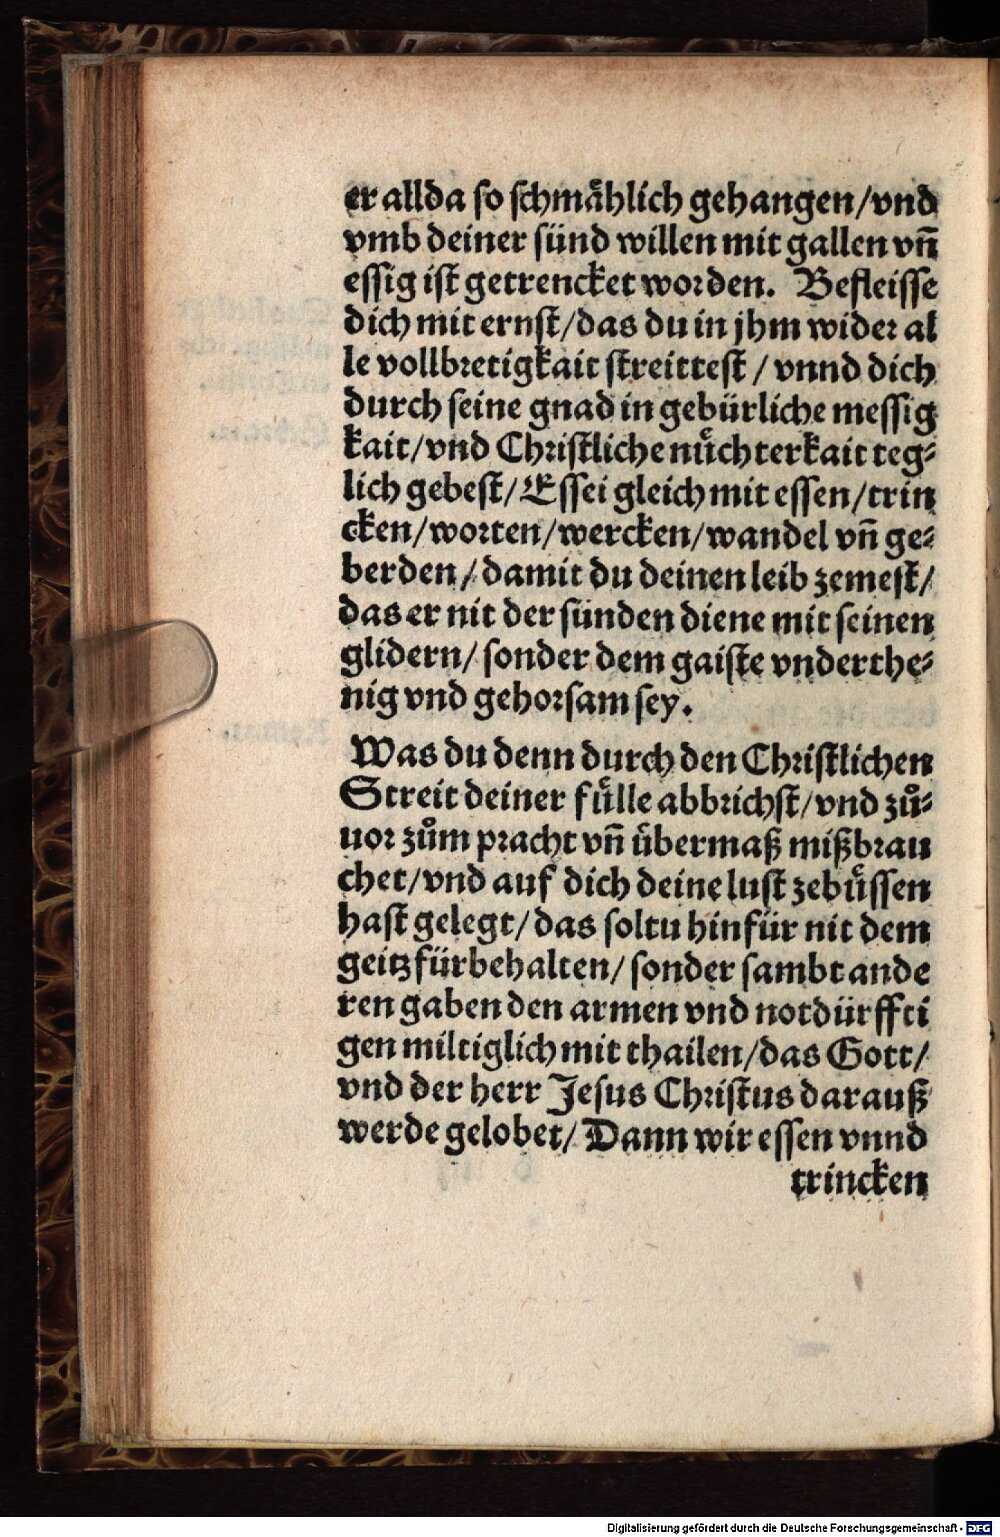 er allda so schmählich gehangen/vnd
vmb deiner sünd willen mit gallen vñ
essig ist getrencket worden. Befleisse
dich mit ernst/das du in jhm wider al
le vollbretigkait streittest / vnnd dich
durch seine gnad in gebürliche messig
kait/vnd Christliche nüchterkait teg⸗
lich gebest/Es sei gleich mit essen/trin
cken/worten/wercken/wandel vñ ge⸗
berden/damit du deinen leib zemest/
das er nit der sünden diene mit seinen
glidern/sonder dem gaiste vnderthe⸗
nig vnd gehorsam sey.
Was du denn durch den Christlichen
Streit deiner fülle abbrichst/vnd zů⸗
uor zům pracht vñ übermaß mißbrau
chet/vnd auf dich deine lust zebüssen
hast gelegt/das soltu hinfür nit dem
geitz fürbehalten/sonder sambt ande
ren gaben den armen vnd notdürffti
gen miltiglich mit thailen/das Gott/
vnd der herr Jesus Christus darauß
werde gelobet/Dann wir essen vnnd
trincken
Digitalisierung gefördert durch die Deutsche Forschungsgemeinschaft - DFG